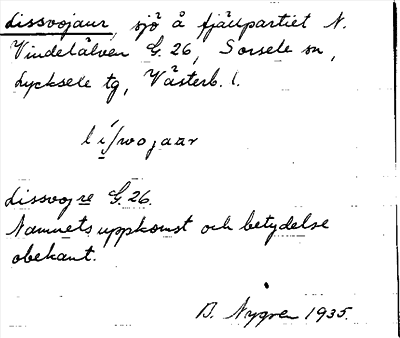 Lissvojaur, sjö å fjällpartiet N.
Vindelälven G. 26, Sorsele sn,
Lycksele tg, Västerb. l.
Lissvojre G. 26.
Namnets uppkomst och betydelse
obekant.
D. Nygren 1935.